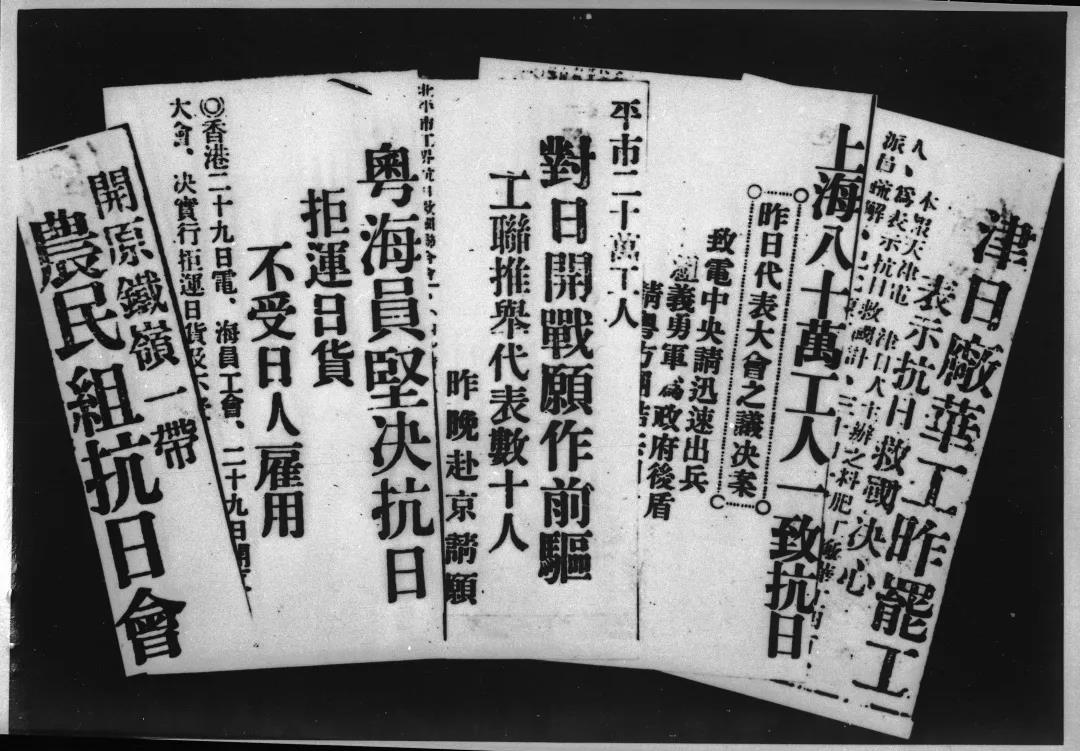 津日廠華工昨罷工
表示抗日救國決心
本報天津電
上海八十萬工人一致抗日
昨日代表大會之議決案
致電中央請迅速出兵
義勇軍為政府後盾
平市二十萬工人
對日開戰願作前驅
工聯推舉代表數十人
昨晚赴京請願
粵海員堅決抗日
拒運日貨
不受日人雇用
◎香港二十九日電、海員工會、二十九日開
大會、決實行拒運日貨及不
開原鐵嶺一帶
農民組抗日會